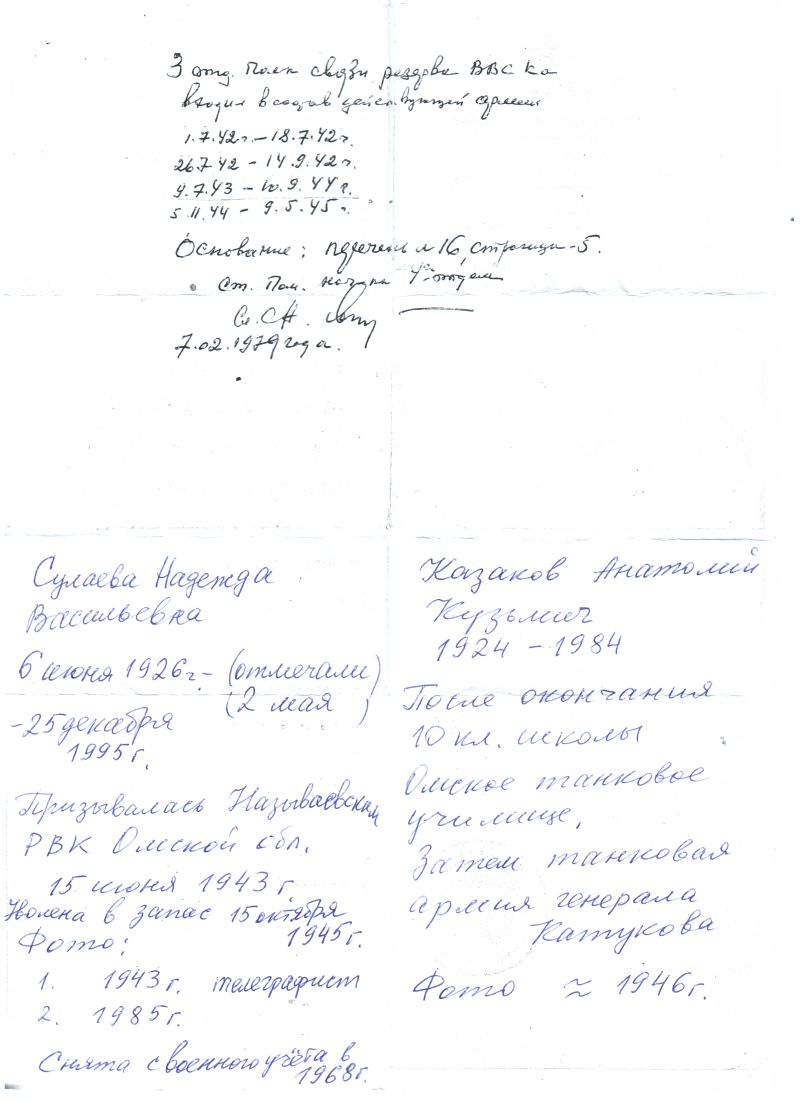 3 отд. полк связи резерва ВВС КА
входил в состав действующей армии
1.7.42г. – 18.7.42г.
26.7.42 – 14.9.42г.
9.7.43 – 10.9.44г.
5.11.44 – 9.5.45г.
Основание: перечень №16, страница-5.
Ст. Пом. нач-ка 4 отдела
7.02.1979 года.
Сулаева Надежда
Васильевна
6 июня 1926г. – (отмечали)
(2 мая)
– 25 декабря
1995г.
Призывалась Называевским
РВК Омской обл.
15 июня 1943 г.
Уволена в запас 15 октября
1945г.
Фото:
1. 1943 г. телеграфист
2. 1985г.
Снята с военного учёта в
1968г.
Казаков Анатолий
Кузьмич
1924 – 1984
После окончания
10 кл. школы
Омское танковое
училище,
Затем танковая
армия генерала
Катукова
Фото ≈ 1946г.